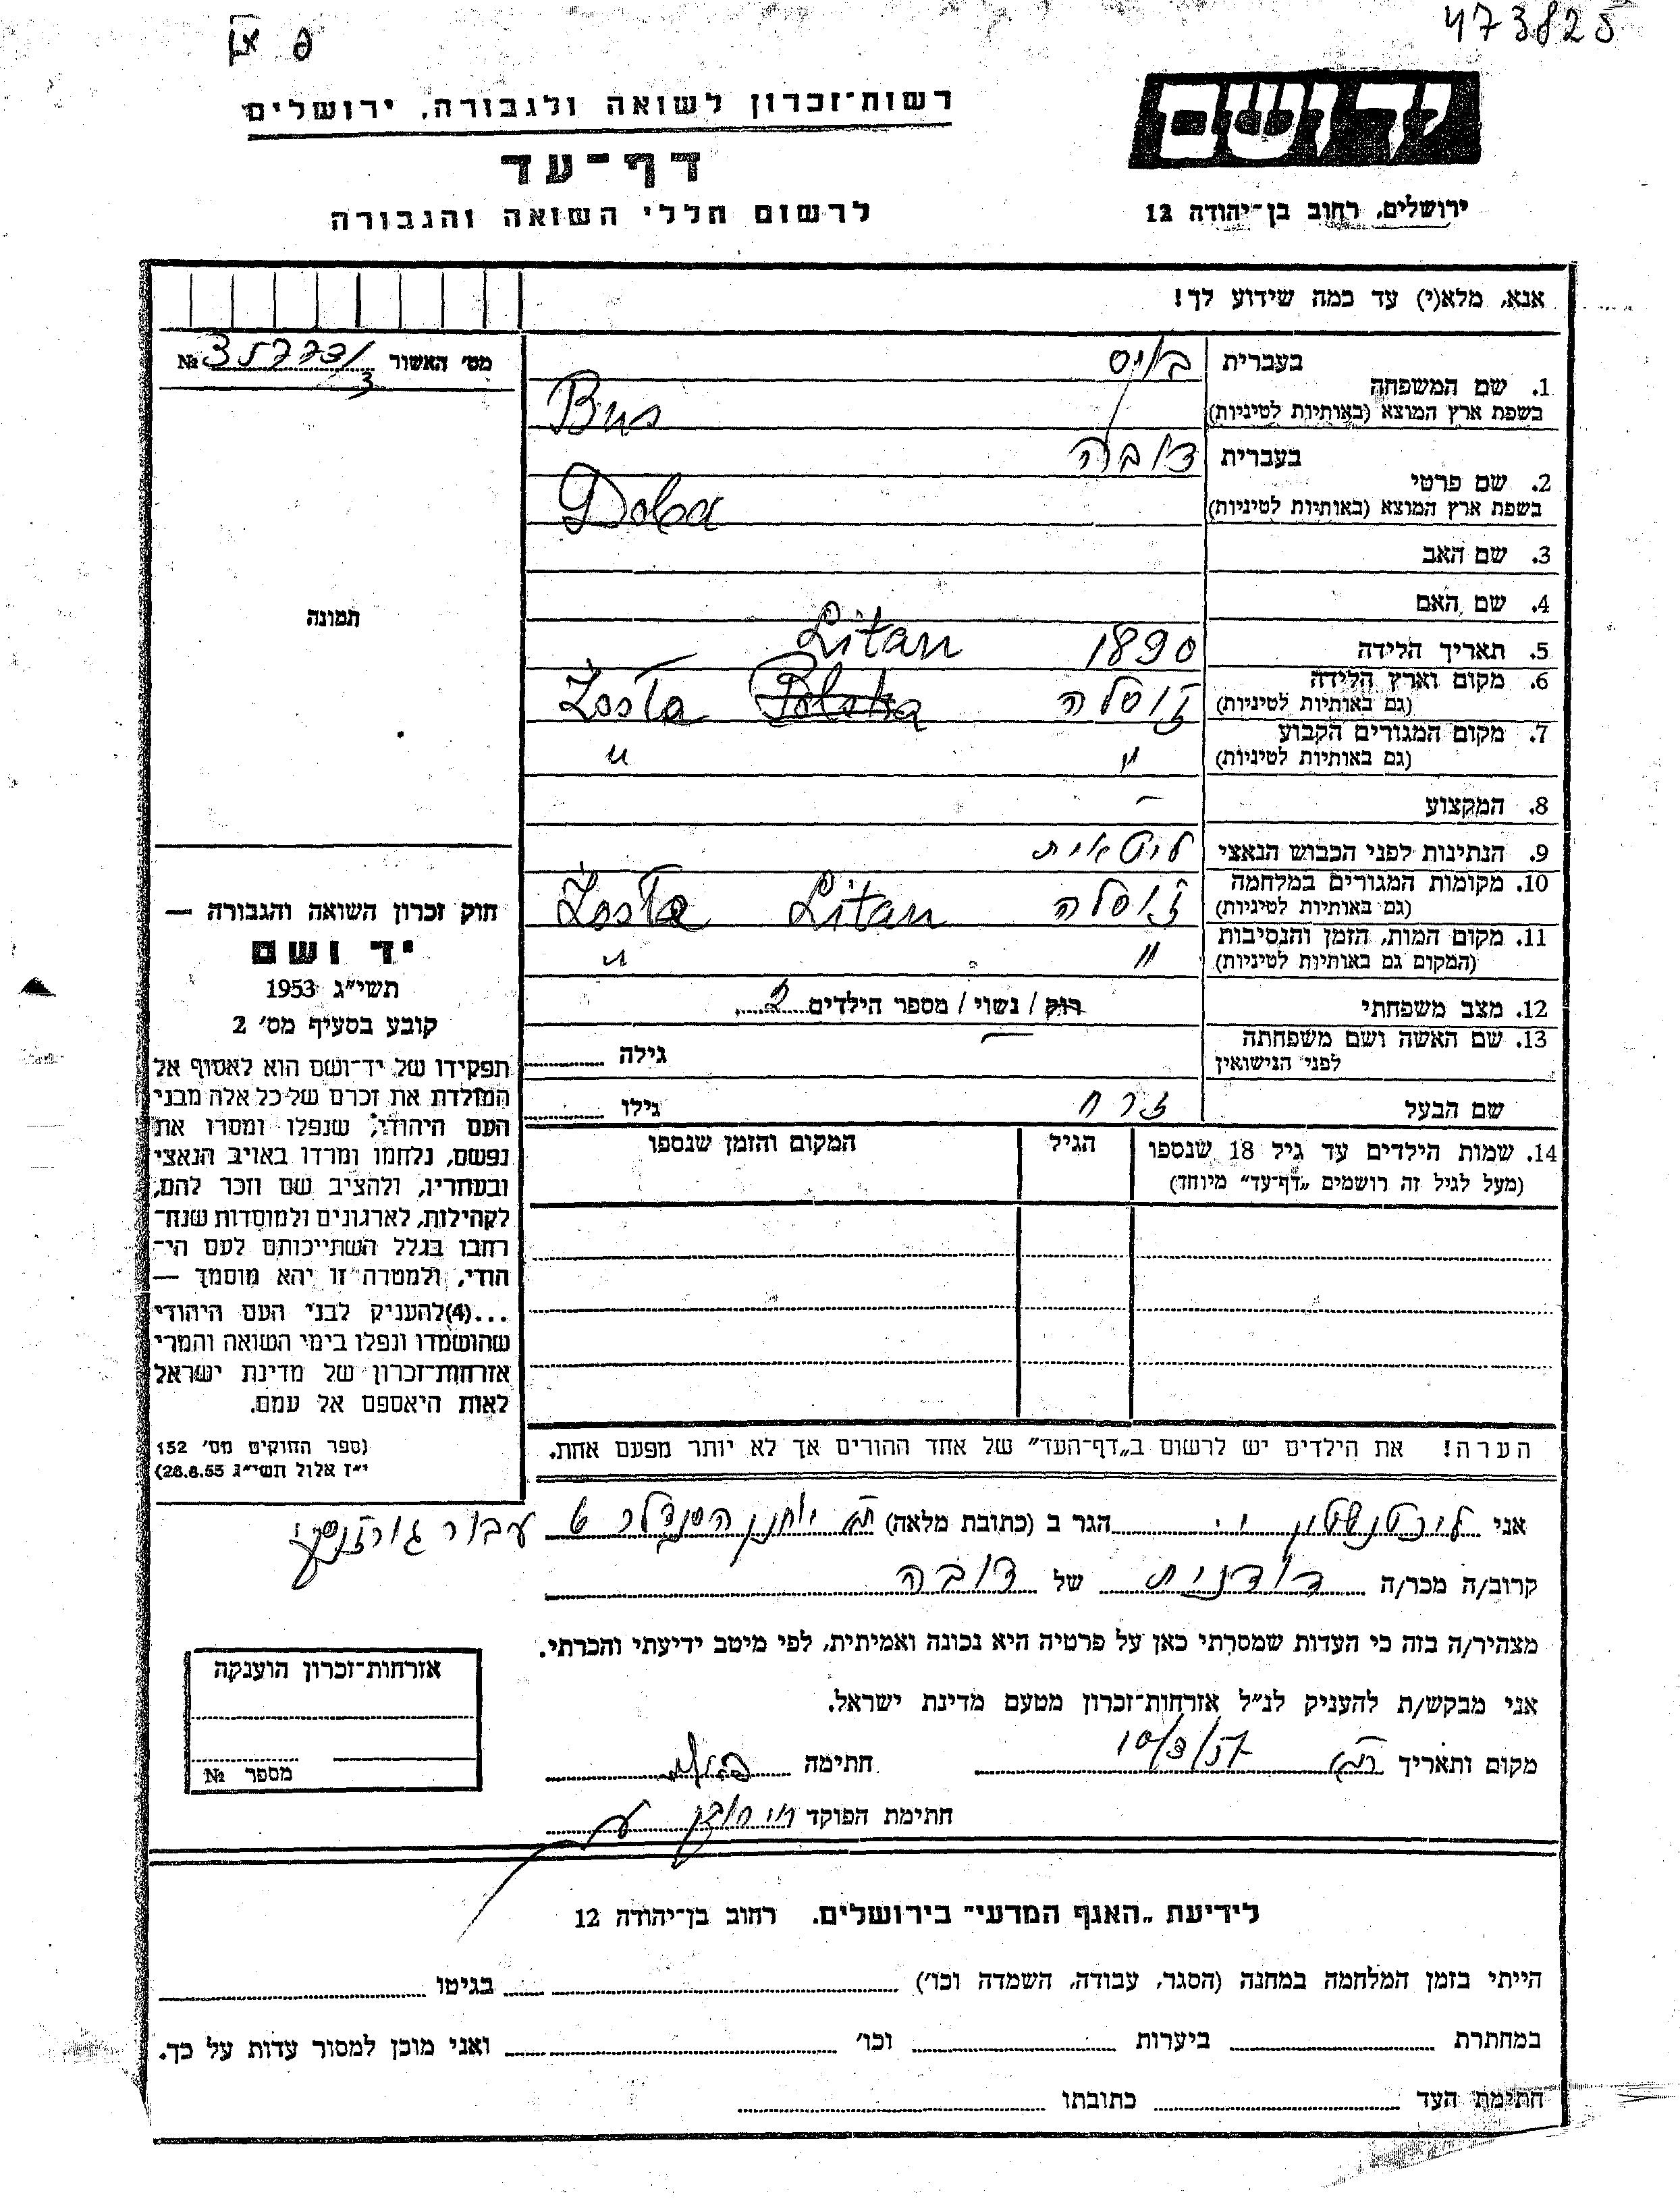 473825
יד ושם
רשות־זכרון לשואה ולגבורה, ירושלים
דף־עד
לרשום חללי השואה והגבורה
ירושלים, רחוב בן־יהודה 12
אנא, מלא(י) עד כמה שידוע לך!
מס׳ האשור №
1. שם המשפחה
בעברית
בויס
בשפת ארץ המוצא (באותיות לטיניות)
Bus
2. שם פרטי
בעברית
דובה
בשפת ארץ המוצא (באותיות לטיניות)
Doba
3. שם האב
4. שם האם
5. תאריך הלידה 1890
Litan
6. מקום וארץ הלידה
(גם באותיות לטיניות)
זוסלה Polska Żosla
7. מקום המגורים הקבוע
(גם באותיות לטיניות)
" "
8. המקצוע –
9. הנתינות לפני הכבוש הנאצי ליטאית
10. מקומות המגורים במלחמה
(גם באותיות לטיניות)
זוסלה Litan Żosla
11. מקום המות, הזמן והנסיבות
(המקום גם באותיות לטיניות)
" "
12. מצב משפחתי רוק / נשוי / מספר הילדים 2
13. שם האשה ושם משפחתה
לפני הנישואין
– גילה
שם הבעל זרח גילו
14. שמות הילדים עד גיל 18 שנספו
(מעל לגיל זה רושמים „דף־עד" מיוחד)
הגיל
המקום והזמן שנספו
הערה! את הילדים יש לרשום ב„דף־העד" של אחד ההורים אך לא יותר מפעם אחת.
תמונה
חוק זכרון השואה והגבורה —
יד ושם
תשי״ג 1953
קובע בסעיף מס׳ 2
תפקידו של יד־ושם הוא לאסוף אל
המולדת את זכרם של כל אלה מבני
העם היהודי, שנפלו ומסרו את
נפשם, נלחמו ומרדו באויב הנאצי
ובעוזריו, ולהציב שם וזכר להם,
לקהילות, לארגונים ולמוסדות שנח־
רחבו בגלל השתייכותם לעם הי־
הודי, ולמטרה זו יהא מוסמך —
...(4)להעניק לבני העם היהודי
שהושמדו ונפלו בימי השואה והמרי
אזרחות־זכרון של מדינת ישראל
לאות היאספם אל עמם.
(ספר החוקים מס׳ 132
י״ז אלול תשי״ג 28.8.53)
אני ליכטנשטין י. הגר ב (כתובת מלאה) ת"א יוחנן הסנדלר 6
קרוב/ה מכר/ה דודנית של דובה
מצהיר/ה בזה כי העדות שמסרתי כאן על פרטיה היא נכונה ואמיתית, לפי מיטב ידיעתי והכרתי.
אני מבקש/ת להעניק לנ״ל אזרחות־זכרון מטעם מדינת ישראל.
מקום ותאריך ת"א 10/3/57 חתימה
חתימת הפוקד
אזרחות־זכרון הוענקה
מספר №
לידיעת „האגף המדעי" בירושלים. רחוב בן־יהודה 12
הייתי בזמן המלחמה במחנה (הסגר, עבודה, השמדה וכו׳) בגיטו
במחתרת ביערות וכו׳ ואני מוכן למסור עדות על כך.
חתימת העד כתובתו